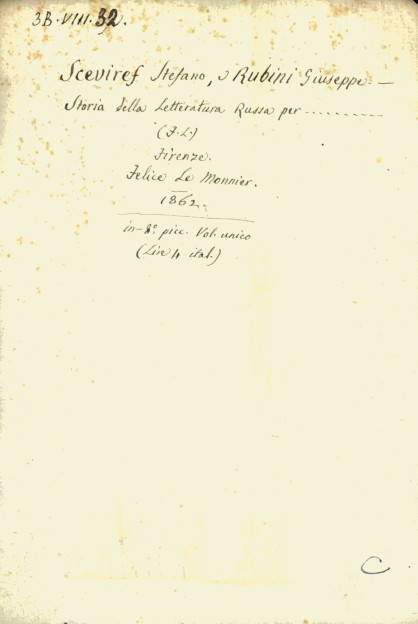 3B. VIII. 32.
Sceviref Stefano, e Rubini Giuseppe = —
Storia della Letteratura Russa per ...........
(F. L.)
Firenze.
Felice Le Monnier.
1862.
in-8.° picc. Vol. unico
(Lire 4 ital.)
C